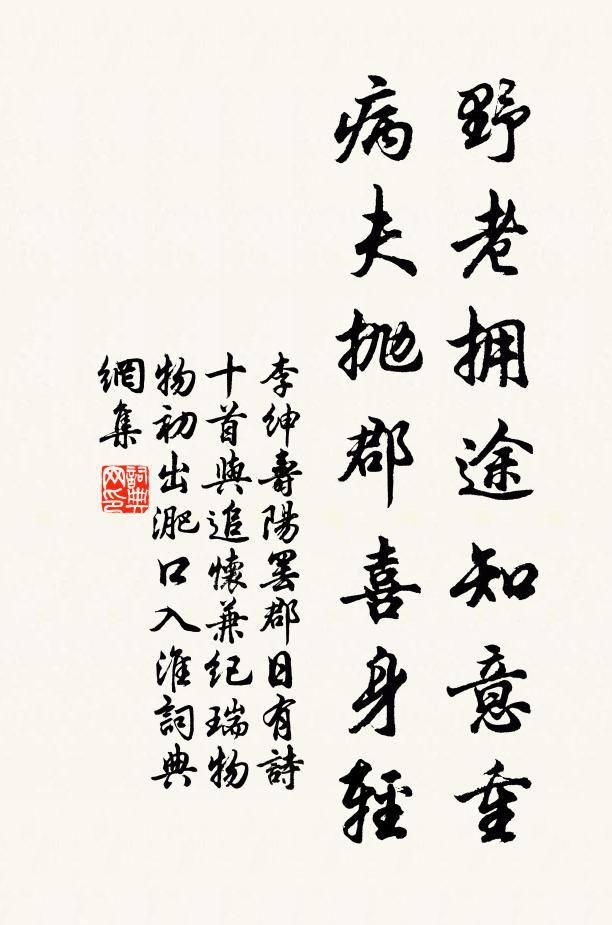 野老拥途知意重
病夫抛郡喜身輕
李紳壽陽罷郡日有詩
十首與追懷兼紀瑞物
物初出淝口入淮詞典
網集
詞典网印